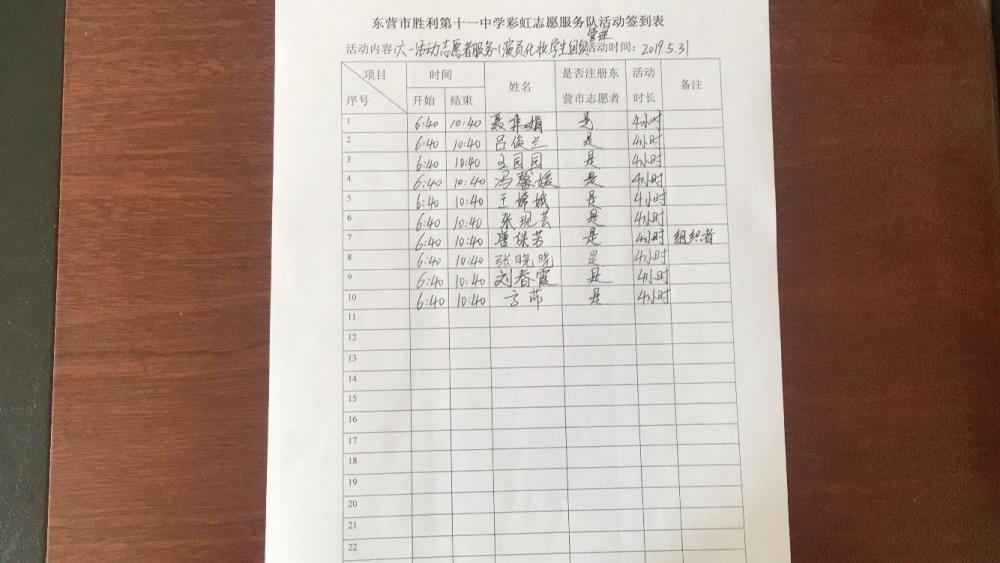 东营市胜利第十一中学彩虹志愿服务队活动签到表
管理
活动内容:六一活动志愿者服务(演员化妆学生组织活动时间:2019.5.31
项目 时间 姓名 是否注册东 活动 备注
序号 开始 结束 营市志愿者 时长
1 6:40 10:40 聂 娟 是 4小时
2 6:40 10:40 吕俊兰 是 4小时
3 6:40 10:40 王园园 是 4小时
4 6:40 10:40 冯馨媛 是 4小时
5 6:40 10:40 王嫦娥 是 4小时
6 6:40 10:40 张现芸 是 4小时
7 6:40 10:40 唐保芳 是 4小时 组织者
8 6:40 10:40 张晓晓 是 4小时
9 6:40 10:40 刘春霞 是 4小时
10 6:40 10:40 方茆 是 4小时
11
12
13
14
15
16
17
18
19
20
21
22